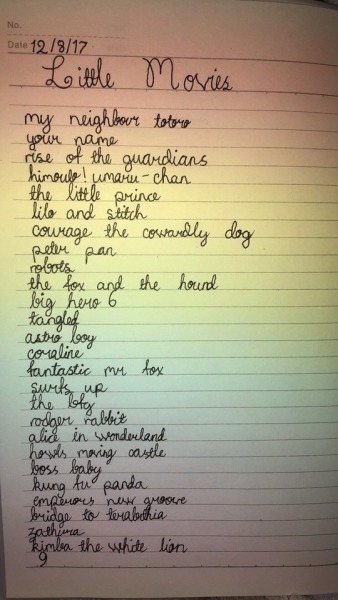 No.
Date 12/8/17
Little Movies
my neighbour totoro
your name
rise of the guardians
himouto! umaru-chan
the little prince
lilo and stitch
courage the cowardly dog
peter pan
robots
the fox and the hound
big hero 6
tangled
astro boy
coraline
fantastic mr fox
surfs up
the bfg
rodger rabbit
alice in wonderland
howls moving castle
boss baby
kung fu panda
emperors new groove
bridge to terabithia
zathura
kimba the white lion
9